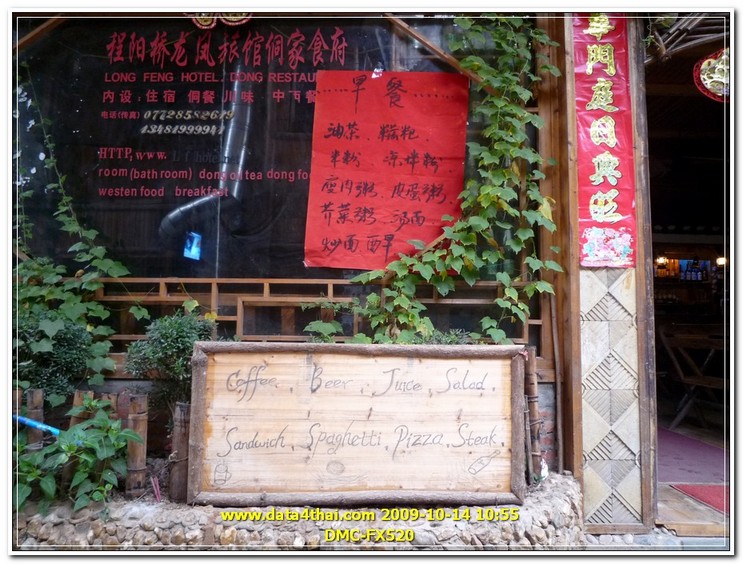 程阳桥龙凤旅馆侗家食府
LONG FENG HOTEL. DONG RESTAU
内设:住宿 侗餐 川味 中西餐
电话(传真) 07728582619
13481999941
HTTP, WWW.
room (bath room) dong oil tea dong foo
westen food breakfast
早餐
油茶、糍粑
米粉、凉拌粉、
瘦肉粥、皮蛋粥、
芥菜粥、汤面
炒面、西早
门庭日兴旺
Coffee. Beer. Juice. Salad.
Sandwich. Spaghetti. Pizza. Steak.
www.data4thai.com 2009-10-14 10:55
DMC-FX520